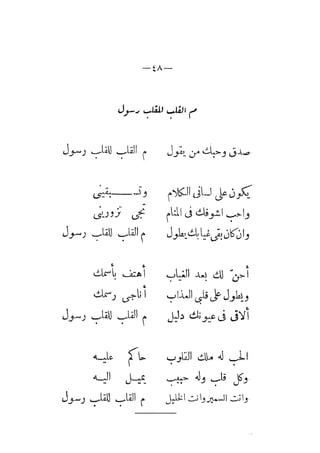 — ٤٨ —
م القلب للقلب رسول
صدق وحيك من يقول م القلب للقلب رسول
يكون على لسانى الكلام وتسبقينى
واحب اشوفك فى المنام تجى تزورينى
وان كان بقى غيابك يطول م القلب للقلب رسول
أحنّ لك بعد الغياب أهتف بأسمك
ويطول على قلبى العذاب أناجى رسمك
ألاقى فى عيونك دليل م القلب للقلب رسول
الحب له ملك القلوب حاكم عليه
وكل قلب وله حبيب يميل اليه
وانت السمير وانت الخليل م القلب للقلب رسول